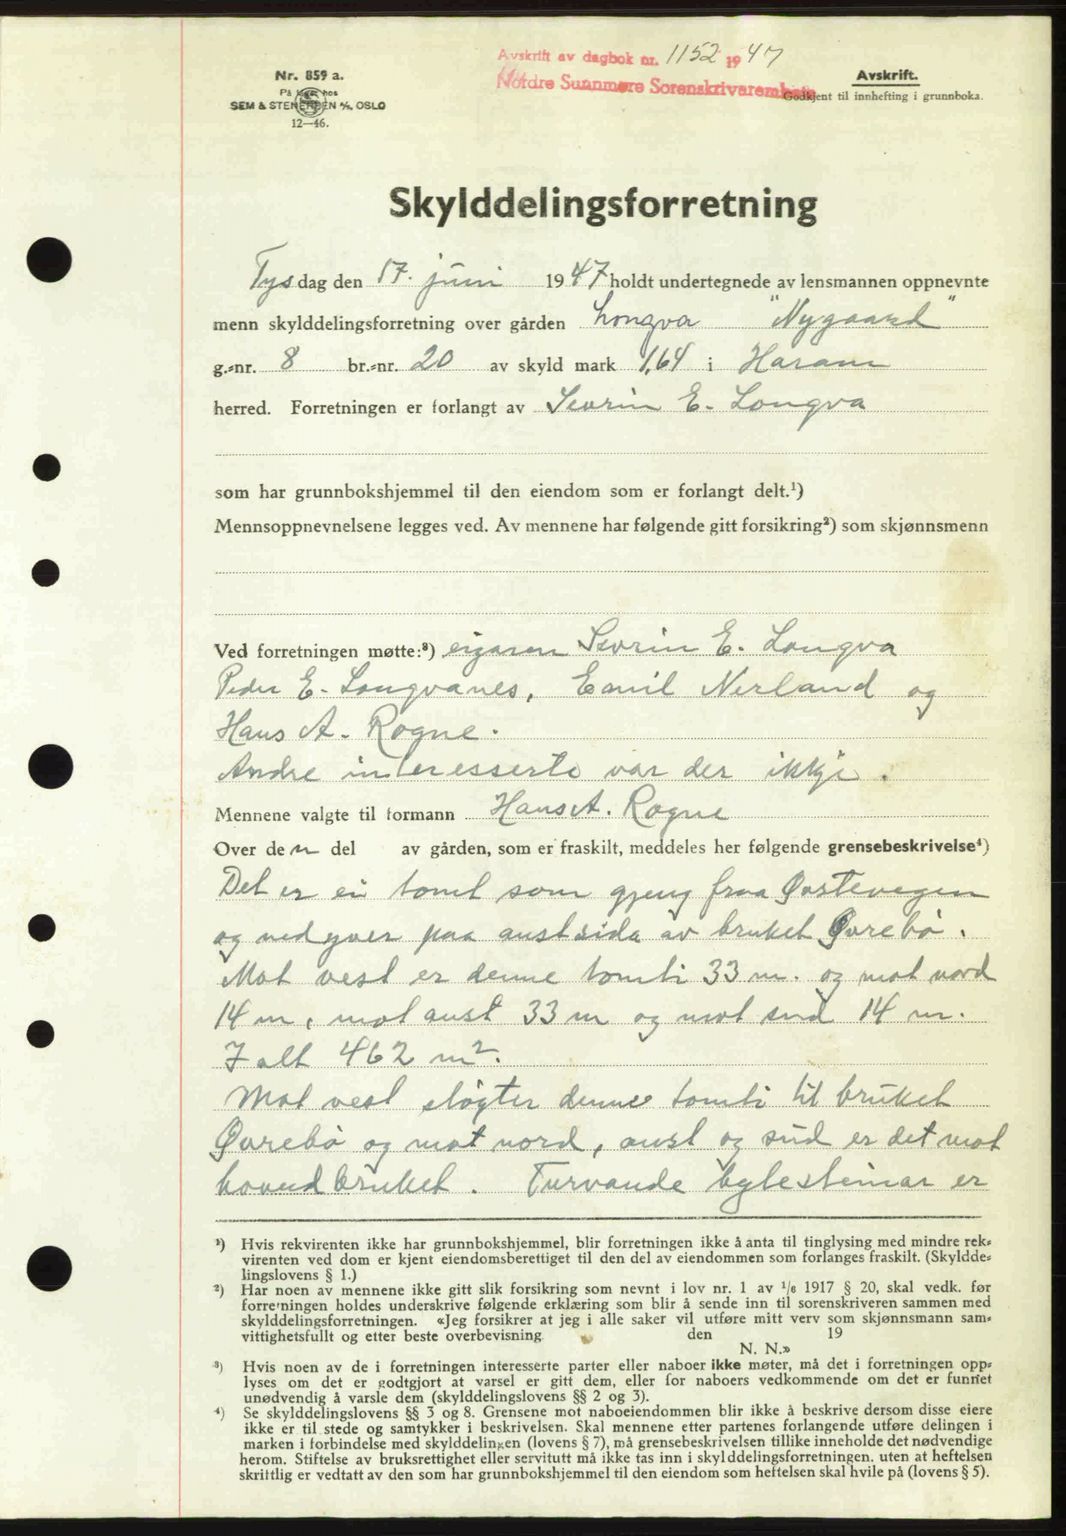 Avskrift av dagbok nr. 1152 1947
Nordre Sunnmøre Sorenskriverembete
Nr. 859 a.
På lager hos
SEM & STENERSEN A/S, OSLO
12—46.
Avskrift.
Godkjent til innhefting i grunnboka.
Skylddelingsforretning
Tysdag den 17. juni 1947 holdt undertegnede av lensmannen oppnevnte
menn skylddelingsforretning over gården Longva "Nygaard"
g.-nr. 8 br.-nr. 20 av skyld mark 1,64 i Haram
herred. Forretningen er forlangt av Sevrin E. Longva
som har grunnbokshjemmel til den eiendom som er forlangt delt.¹)
Mennsoppnevnelsene legges ved. Av mennene har følgende gitt forsikring²) som skjønnsmenn
Ved forretningen møtte:³) eigaren Sevrin E. Longva
Peder E. Longvanes, Emil Nerland og
Hans A. Rogne.
Andre interesserte var der ikkje.
Mennene valgte til formann Hans A. Rogne
Over den del av gården, som er fraskilt, meddeles her følgende grensebeskrivelse⁴)
Det er ei tomt som gjeng fraa Øvstevegen
og nedyver paa austsida av bruket Øvrebø.
Mot vest er denne tomti 33 m. og mot nord
14 m, mot aust 33 m og mot sud 14 m.
I alt 462 m².
Mot vest støyter denne tomti til bruket
Øvrebø og mot nord, aust og sud er det mot
hovudbruket. Turvande bytesteinar er
¹) Hvis rekvirenten ikke har grunnbokshjemmel, blir forretningen ikke å anta til tinglysing med mindre rek-
virenten ved dom er kjent eiendomsberettiget til den del av eiendommen som forlanges fraskilt. (Skyldde-
lingslovens § 1.)
²) Har noen av mennene ikke gitt slik forsikring som nevnt i lov nr. 1 av 1/6 1917 § 20, skal vedk. før
forretningen holdes underskrive følgende erklæring som blir å sende inn til sorenskriveren sammen med
skylddelingsforretningen. «Jeg forsikrer at jeg i alle saker vil utføre mitt verv som skjønnsmann sam-
vittighetsfullt og etter beste overbevisning den 19
N. N.»
³) Hvis noen av de i forretningen interesserte parter eller naboer ikke møter, må det i forretningen opp-
lyses om det er godtgjort at varsel er gitt dem, eller for naboers vedkommende om det er funnet
unødvendig å varsle dem (skylddelingslovens §§ 2 og 3).
⁴) Se skylddelingslovens §§ 3 og 8. Grensene mot naboeiendommen blir ikke å beskrive dersom disse eiere
ikke er til stede og samtykker i beskrivelsen. Skal mennene etter partenes forlangende utføre delingen i
marken i forbindelse med skylddelingen (lovens § 7), må grensebeskrivelsen tillike inneholde det nødvendige
herom. Stiftelse av bruksrettighet eller servitutt må ikke tas inn i skylddelingsforretningen, uten at heftelsen
skriftlig er vedtatt av den som har grunnbokshjemmel til den eiendom som heftelsen skal hvile på (lovens § 5).